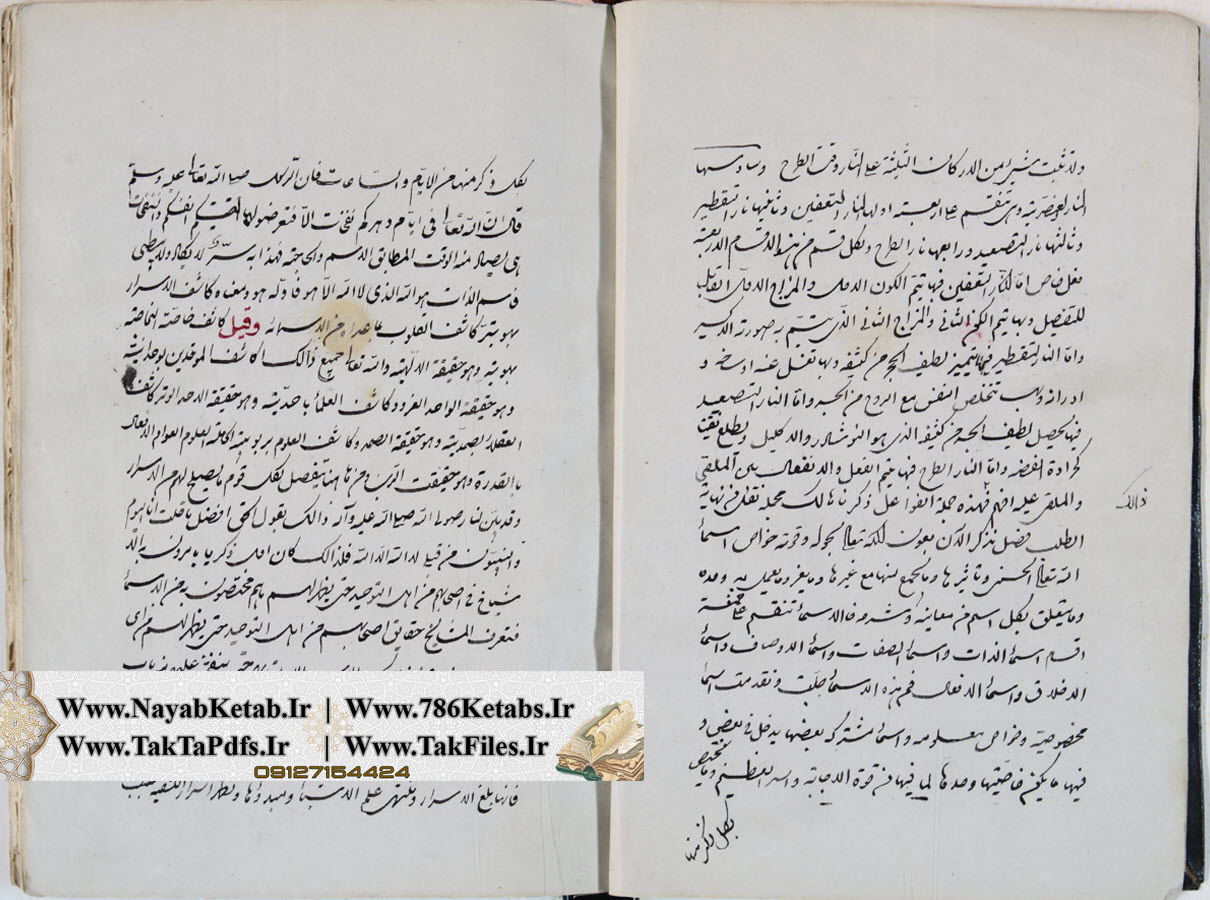 ولا تثبت شيئ من الاركان الثلثة على النار وقت الطرح وسادسها
النار العنصرية وهى تنقسم على اربعة اولها النار التعفين وثانيها نار التقطير
وثالثها نار التصعيد ورابعها نار الطرح ولكل قسم من هذه الاقسام الاربعة
فعل خاص اما النار التعفين فبها يتم الكون الاول والمزاج الاول القابل
للتفصيل وبها يتم الكون الثانى والمزاج الثانى الذى يتم به صورة الاكسير
واما النار التقطير فبها يتميز لطيف الحجر من كثيفه وبها تغسل عنه اوساخه و
ادرانه وبه تتخلص النفس مع الروح من الجسد واما النار التصعيد
فبها يحصل لطيف الجسد من كثيفه الذى هو النوشادر والاكليل ويطلع نقيا
كبرادة الفضه واما النار الطرح فبها يتم الفعل والانفعال بين الملقى
والملقى عليه افهم فهذه جملة القوا على ذكرناها لك مجملة نقل من نهاية
ذالك
الطلب فصل نذكر الان بعون الله تعالى بحوله وقوته خواص اسماء
الله تعالى الحسنى وتاثيرها وما يجمع منها مع غيرها وما يفرد ما يعمل به وحده
وما يتعلق بكل اسم من معانيه وشروطه فالاسماء تنقسم على خمسة
اقسام اسماء الذات واسماء الصفات واسماء الاوصاف واسماء
الاخلاق واسماء الافعال فمن هذه الاسماء جلت وتقدمت اسماء
مخصوصة وخواص معلومه واسماء مشتركه بعضها يدخل فى بعض و
فيها ما يكون خاصيتها وحدها لما فيها من قوة الاجابة واسرار العظيم وما يختص
بكل ذكر منها
بكل ذكر منها من الايام والساعات فان الرسول صلى الله تعالى عليه وسلم
قال ان لله تعالى فى ايام دهركم نفحات الا فتعرضوا لها
هى يصادف منه الوقت المطابق الاسم والحاجة فهذا به سر
فاسم الذات هو الله الذى لا اله الا هو فاوله هو ومعناه كاشف الاسرار
بهويته كاشف القلوب بما عداه من الاسمائه وقيل كاشف خاصة الخاصة
بهويته وهو حقيقة الالهية والله تعالى جميع ذالك كاشف الموحدين بوحدانيته
وهو حقيقة الواحد الفرد وكاشف العلماء باحديته وهو حقيقة الاحد الوتر كاشف
العقلاء بصمديته وهو حقيقة الصمد وكاشف العلوم بربوبيته
بالقدرة وهو حقيقت الرب ومن هاهنا تتفصل لكل قوم ما يصلح لهم من الاسرار
وقد بين لنا رسول الله صلى الله عليه وآله ذالك بقول الحق افضل ما قلت انا
والنبيون من قبلى لا اله الا الله فلذالك كان اول ذكر ما يامرون به
مشايخ فى اصحابهم من اهل التوحيد حتى يظهر لهم ما هم مختصون به من الاسماء
فتعرف المشايخ حقايق اصحابهم من اهل التوحيد حتى يظهر لهم من اى
Www.NayabKetab.Ir | Www.786Ketabs.Ir
Www.TakTaPdfs.Ir | Www.TakFiles.Ir
09127154424
فانها يبلغ الاسرار وينتهى علم الاشياء ومبدؤها